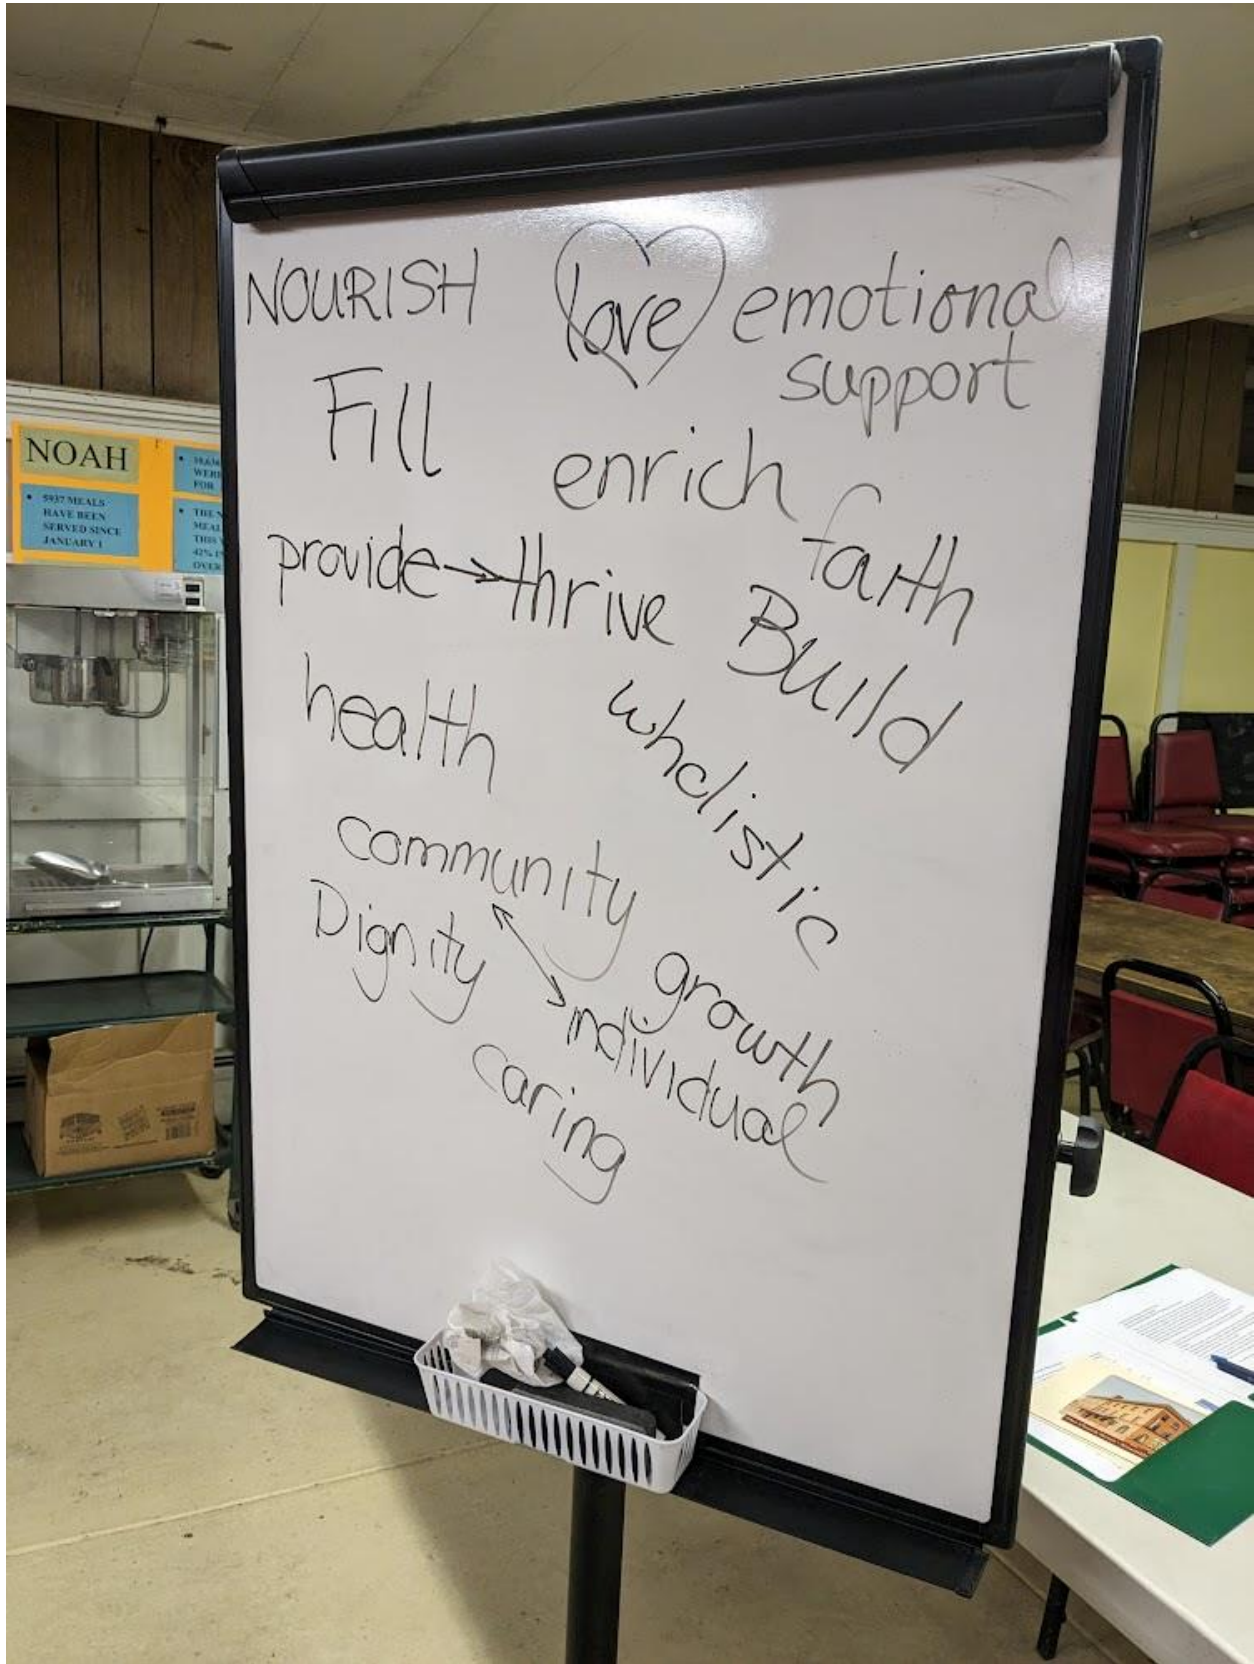 NOURISH love emotional
support
Fill
enrich
faith
provide → thrive
Build
health
wholistic
community
Dignity
growth
individual
caring
NOAH
• 5937 MEALS
HAVE BEEN
SERVED SINCE
JANUARY 1
WERE
FOR
MEAL
THIS
42%
OVER